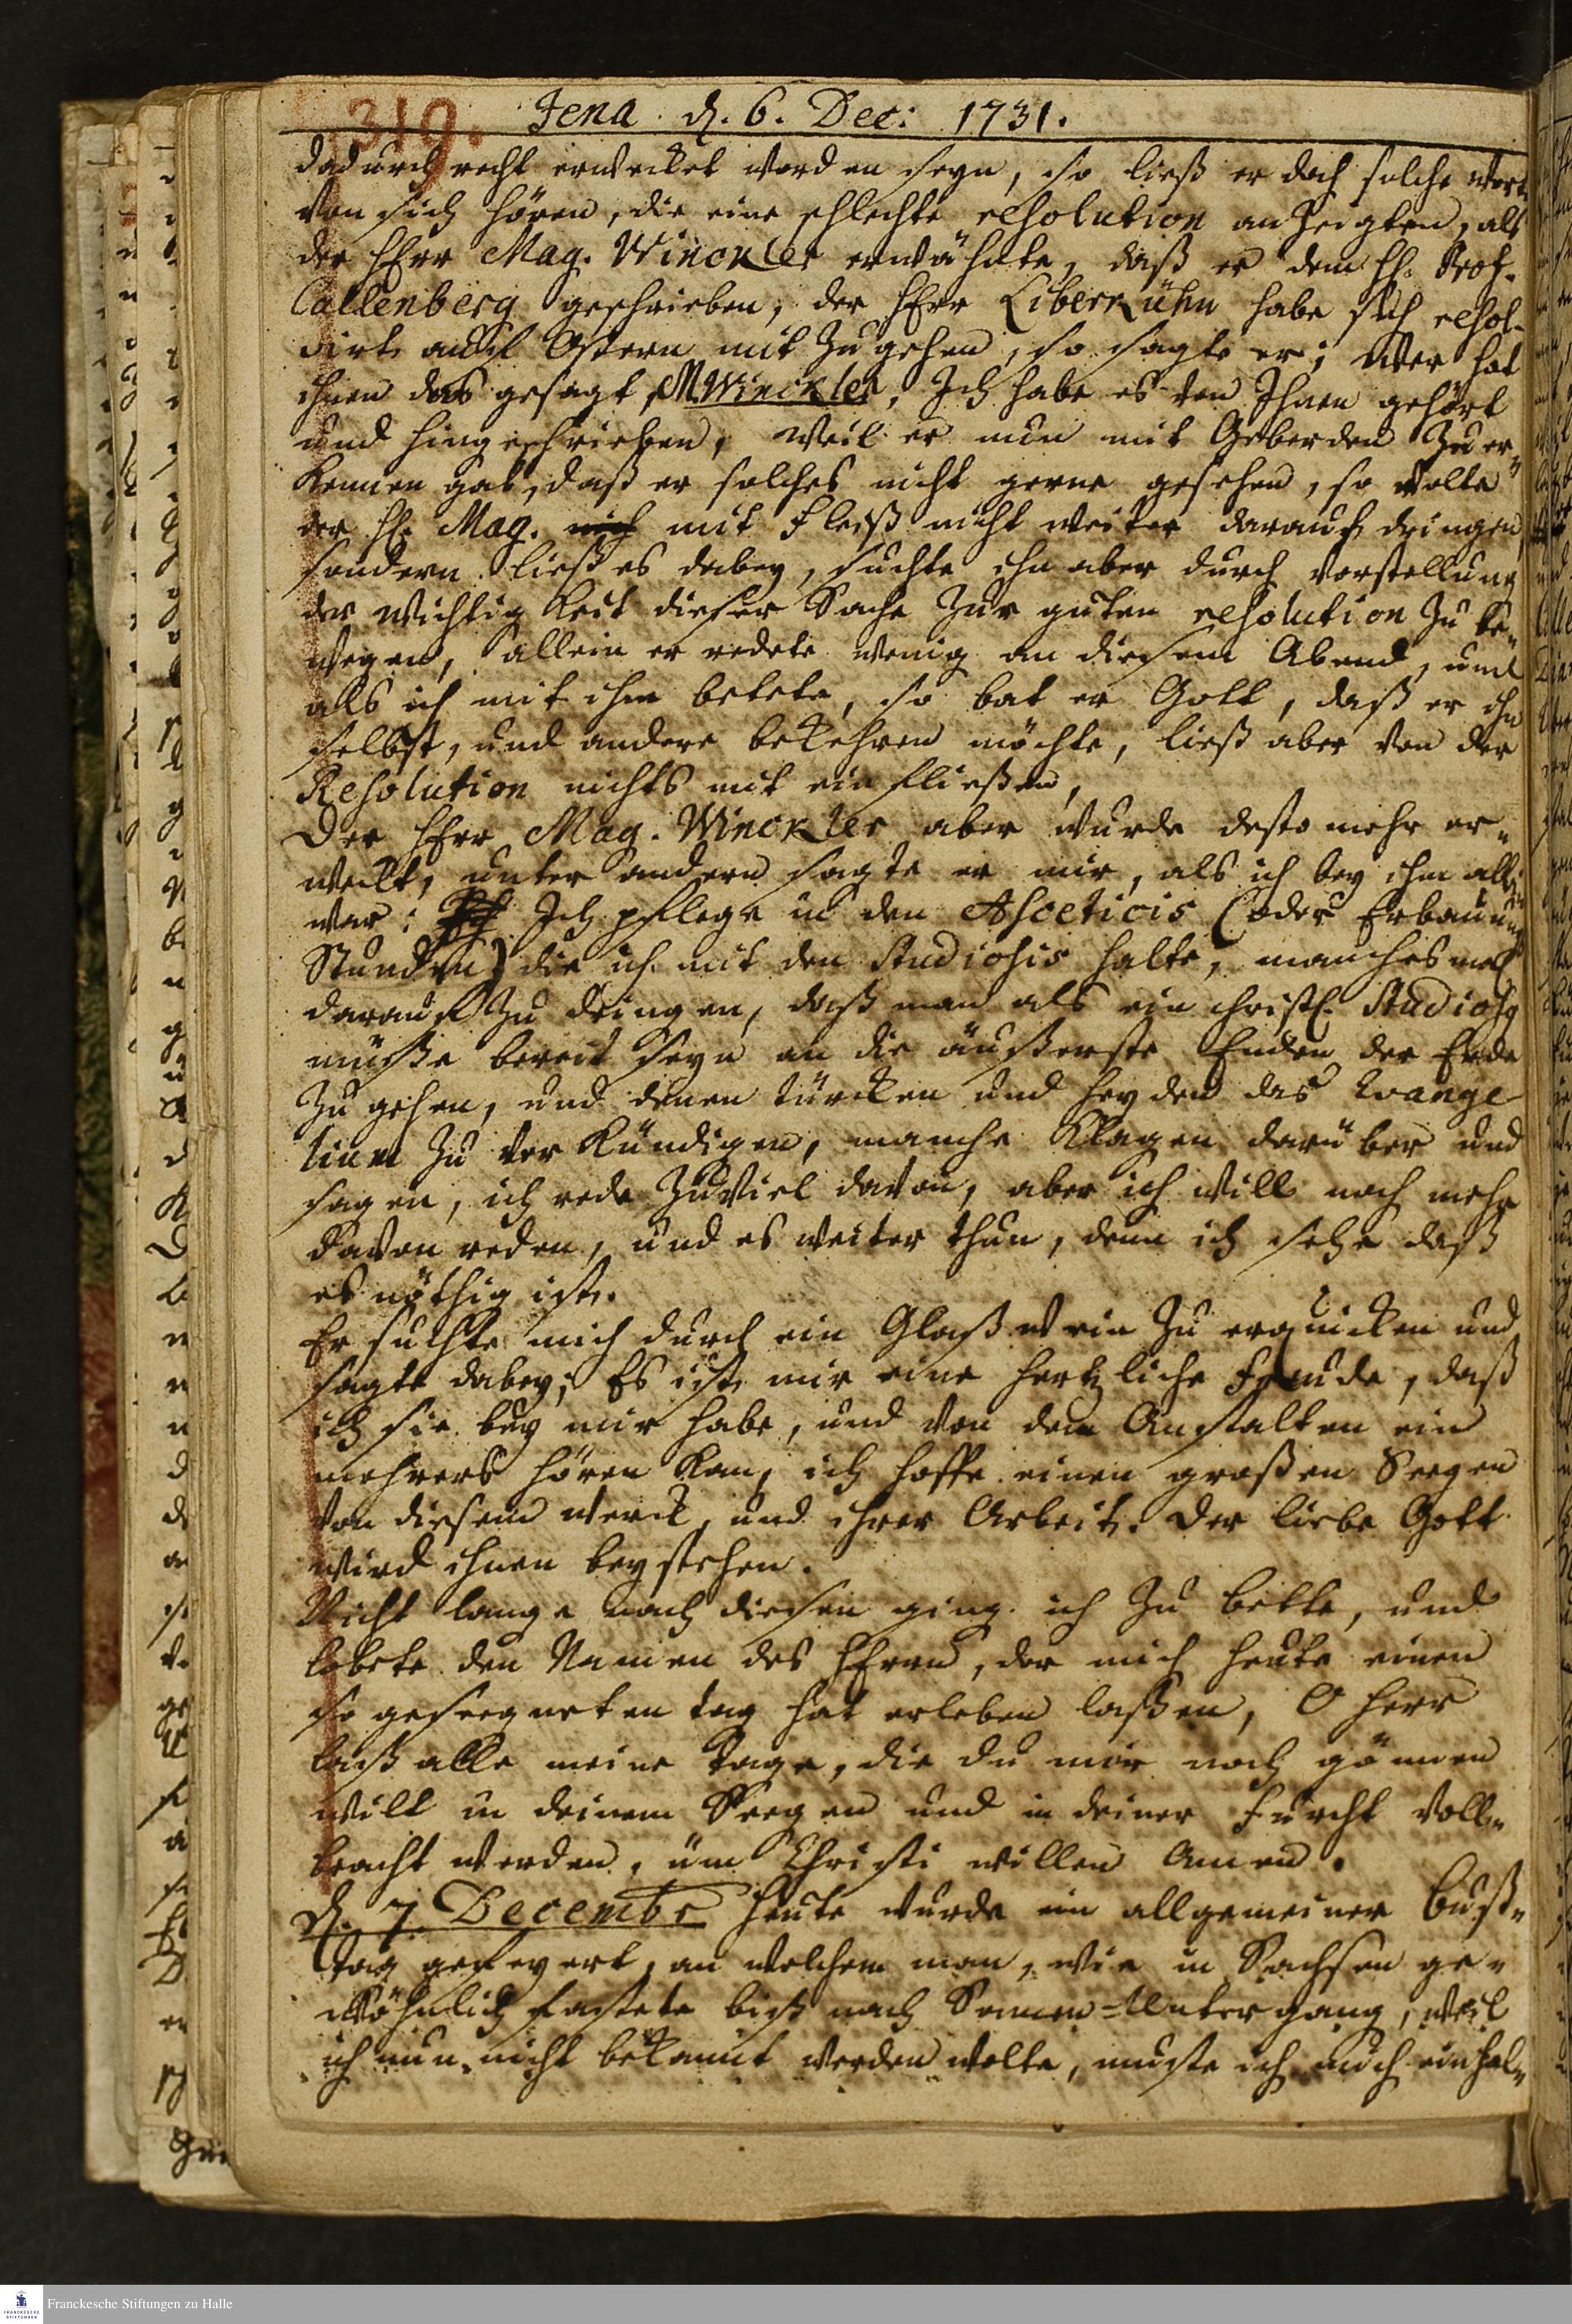 319.
Jena. d. 6. Dec: 1731.
dadurch recht erwecket worden seyn, so ließ er doch solche wort
von sich hören, die eine schlechte resolution anzeigten, als
der HErr Mag. Winckler erwähnte, daß er dem H. Prof.
Callenberg geschrieben, der HErr Liberkühn habe sich resol-
virt auf Ostern mit zu gehen, so sagte er; Wer hat
ihnen das gesagt, M. Winckler, Ich habe es von Ihnen gehört
und hingeschrieben, weil er nun mit Geberden zu er-
kennen gab, daß er solches nicht gerne gesehen, so wolte
der H. Mag. mit Fleiß nicht weiter darauf dringen,
sondern ließ es dabey, suchte ihn aber durch Vorstellung
der Wichtigkeit dieser Sache zur guten resolution zu be-
wegen, allein er redete wenig an diesem Abend, und
als ich mit ihm betete, so bat er Gott, daß er ihn
selbst, und andere bekehren möchte, ließ aber von der
Resolution nichts mit einfließen,
Der HErr Mag. Winckler aber wurde desto mehr er-
weckt, unter andern sagte er mir, als ich bey ihm allein
war: Ich pflege in den Asceticis (oder Erbauungs
Stunden) die ich mit den Studiosis halte, manchesmal
darauf zu dringen, daß man als ein christl. Studiosg
müße bereit seyn an die äußerste Enden der Erde
zu gehen, und denen Türcken und Heyden das Evange-
lium zu verkündigen, manche klagen darüber und
sagen, ich rede zuviel davon, aber ich will noch mehr
davon reden, und es weiter thun, denn ich sehe daß
es nöthig ist.
Er suchte mich durch ein Glaß Wein zu erquicken und
sagte dabey; Es ist mir eine hertzliche Freude, daß
ich sie bey mir habe, und von dem Anstalten ein
mehrers hören kan, ich hoffe einen großen Seegen
von diesem Werck, und ihrer Arbeit. Der liebe Gott
wird ihnen beystehen.
Nicht lange nach diesen ging ich zu bette, und
lobete den Namen des HErrn, der mich heute einen
so geseegneten tag hat erleben laßen, O Herr
laß alle meine Tage, die du mir noch gönnen
wilt in deinem Seegen und in deiner Furcht voll-
bracht werden, üm Christi willen Amen.
d. 7. Decembr Heute wurde ein allgemeiner Buß-
tag gefeyert, an welchem man, wie in Sachsen ge-
wöhnlich fastete biß nach Sonnen-Untergang, weil
ich nun nicht bekannt werden wolte, muste ich mich einhal-
Franckesche Stiftungen zu Halle